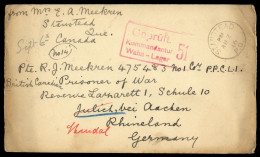 from Mrs E. A. Meekren
Stanstead
Que.
Sept 6th Canada
No 14
Geprüft
Kommandantur
Wahn - Lager
51
Pte. R. J. Meekren 475483 No 1 Coy. P.P.C.L.I.
British Canadian Prisoner of War
Reserve Lazarett 1, Schule 10
Julich, bei Aachen
Rhineland
Germany